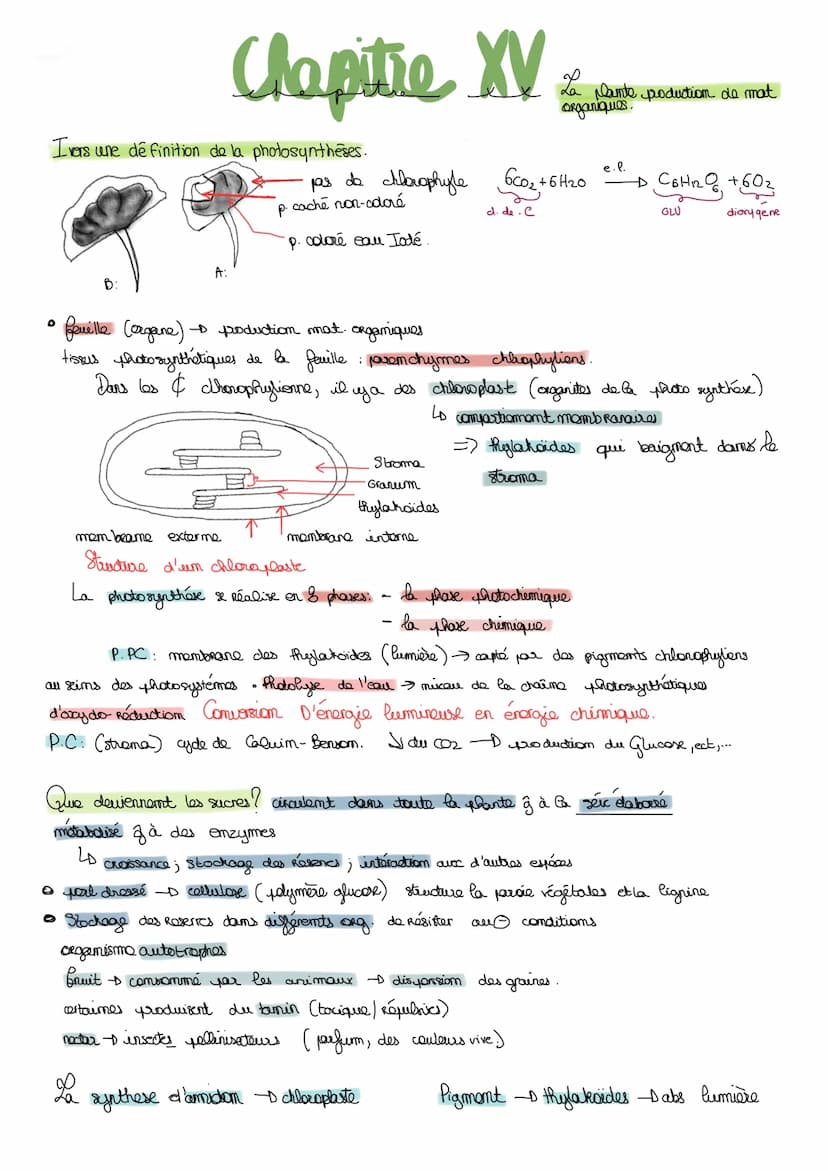 Chapitre XV
chapitre xx
La plante production de mat
organiques.
I vers une définition de la photosynthèses.
pas de chlorophyle
p. caché non-coloré
p. coloré eau Iodé.
B:
A:
6CO2 + 6H2O e.l. → C6H12O6 + 6O2
d. de. C GLU dioxygène
• feuille (organe) → production mat. organiques
tissus photosynthétiques de la feuille : parenchymes chlrophyliens.
Dans les ₵ chlorophylienne, il y a des chloroplaste (organites de la photo synthèse)
↳ compartiment membranaires
=> thylakoïdes qui baignent dans le
stroma
Stroma
Granum
thylakoïdes
membrane externe
membrane interne
Structure d'un chloroplaste
La photosynthèse se réalise en 2 phases: - la phase photochimique
- la phase chimique
P.PC: membrane des thylakoïdes (lumière) → capté par des pigments chlorophyliens
au seins des photosystèmes • Photolyse de l'eau → niveau de la chaîne photosynthétiques
d'oxydo-réduction Conversion D'énergie lumineuse en énergie chimique.
P.C: (stroma) cycle de Calvin-Benson. ↘ du CO2 → production du Glucose, ect,...
Que deviennent les sucres? circulent dans toute la plante ĝ à la sève élaborée
métabolisé ĝ à des enzymes
↳ croissance ; stockage des réserves ; intéraction avec d'autres espèces
• port dressé → cellulose (polymère glucose) structure la paroie végétales et la lignine
• Stockage des reserves dans différents org. de résister au ⊖ conditions
organisme autotrophes
fruit → consommé par les animaux → dispersion des graines.
certaines produisent du tanin (toxique/répulsives)
nectar → insectes pollinisateurs (parfum, des couleurs vive.)
La synthese d'amidon → chloroplaste
Pigment → thylakoïdes → abs lumière